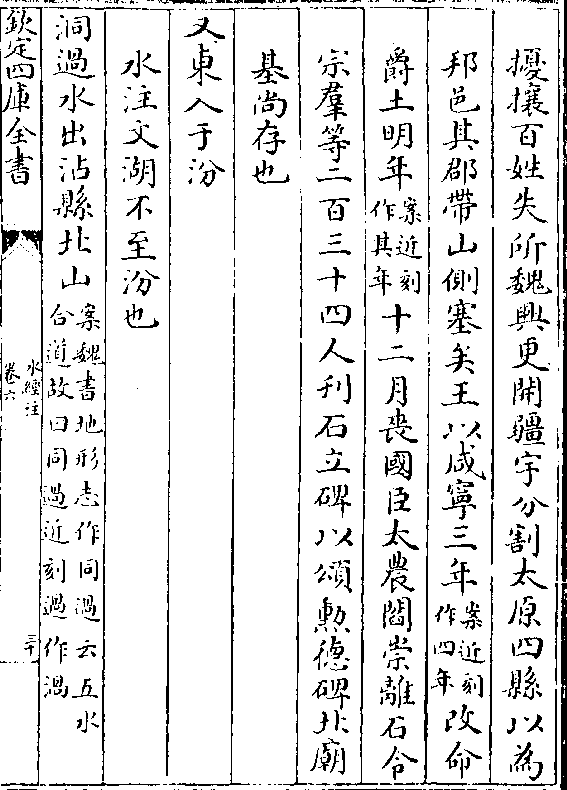 擾攘百姓失所魏興更開疆宇分割太原四縣以為
邦邑其郡帶山側塞矣王以咸寧三年案近刻作四年改命
爵土明年案近刻作其年十二月喪國臣太農閻崇離石令
宗羣等二百三十四人刋石立碑以頌勲德碑北廟
基尚存也
又東入于汾
水注文湖不至汾也
洞過水出沾縣北山案魏書地形志作同過云五水合道故曰同過近刻過作渦
欽定四庫全書
水經注
卷六
三十